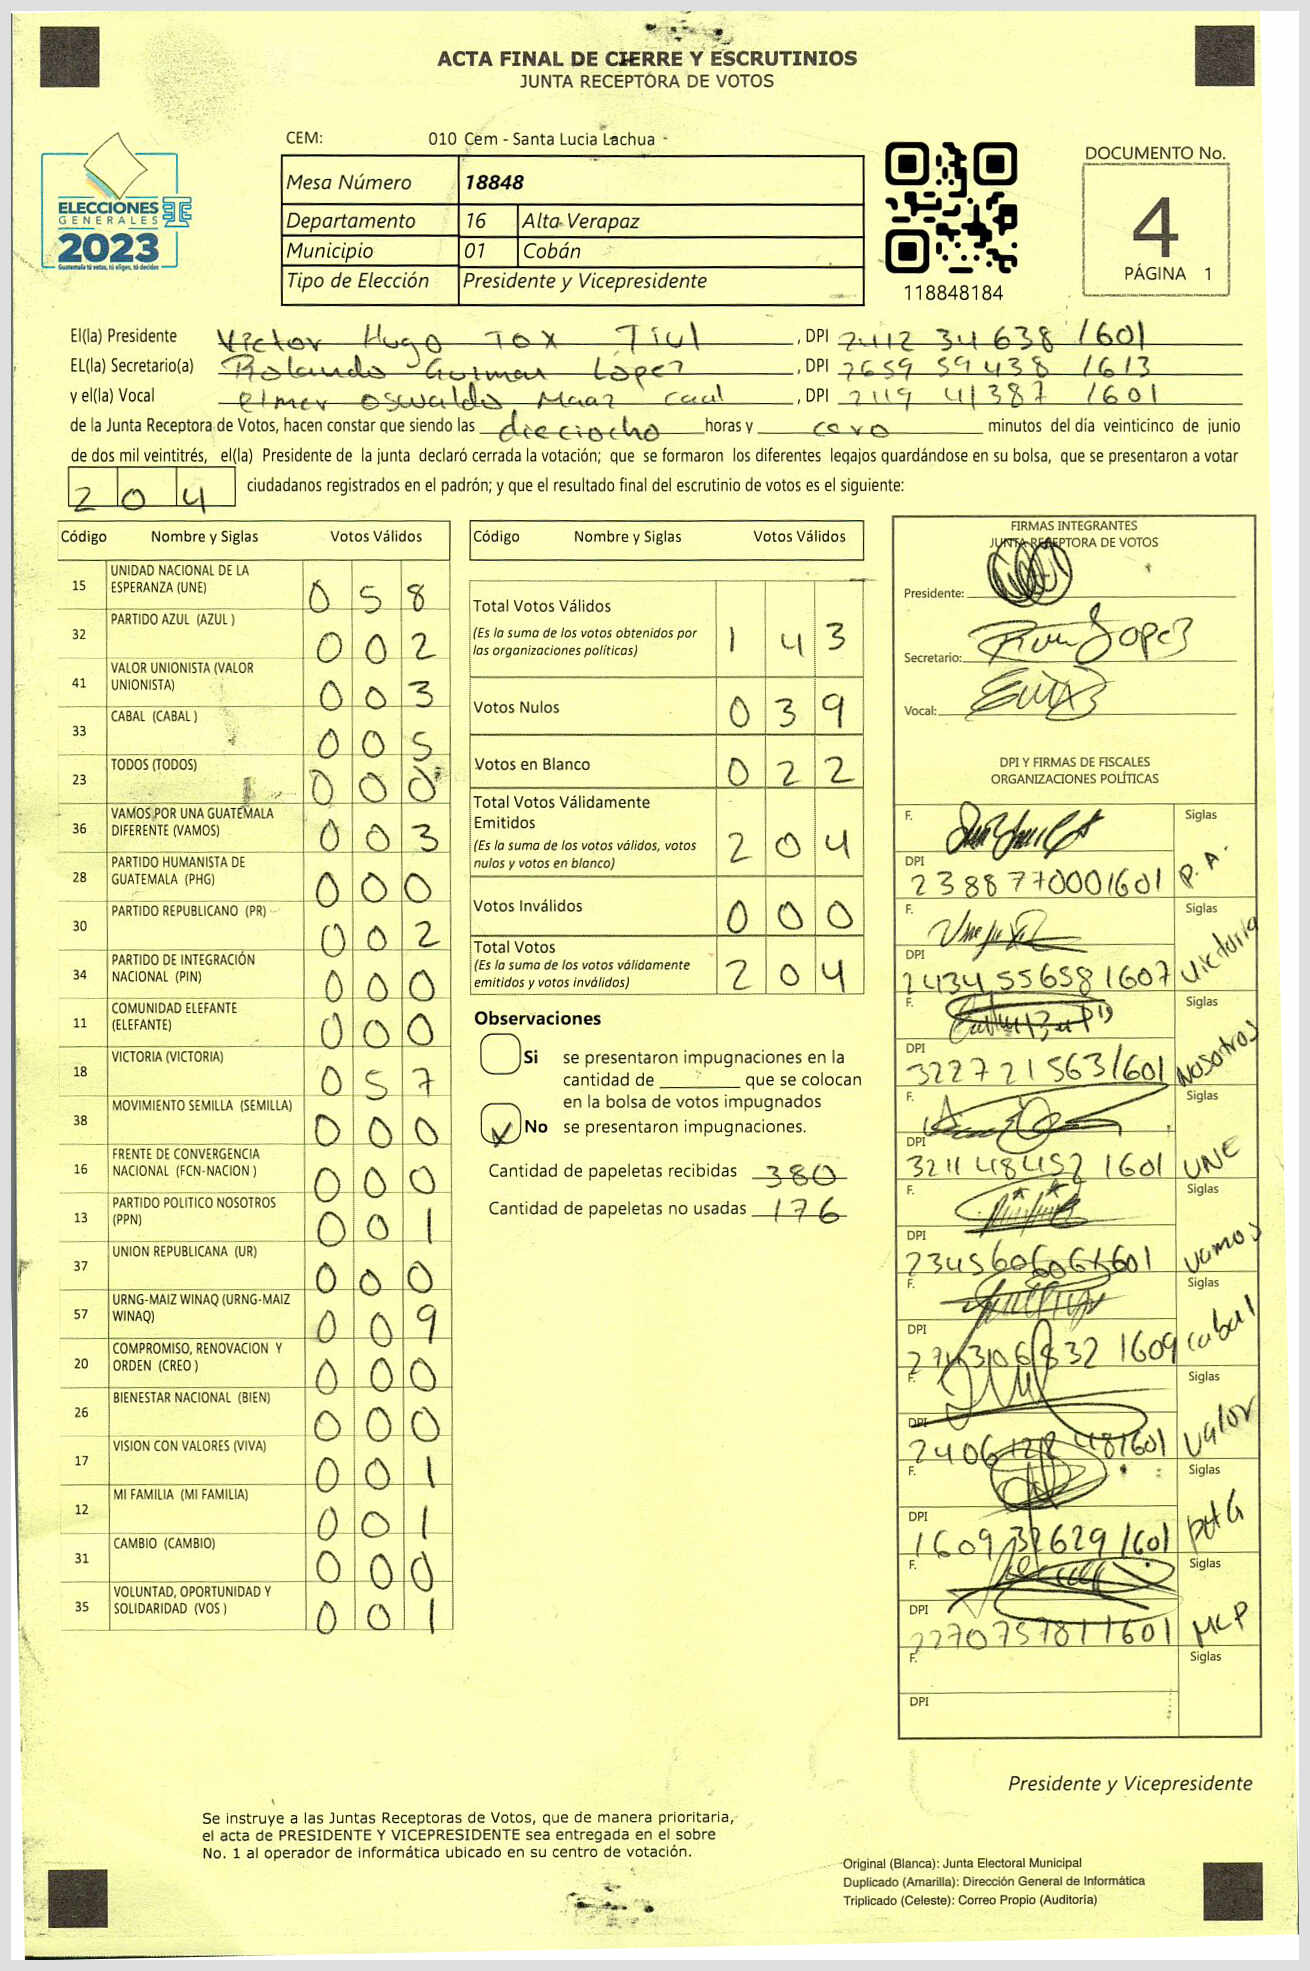 ACTA FINAL DE CIERRE Y ESCRUTINIOS
JUNTA RECEPTORA DE VOTOS
CEM: 010 Cem - Santa Lucia Lachua
ELECCIONES
GENERALES
2023
Guatemala tú votas, tú eliges, tú decides
Mesa Número 18848
Departamento 16 Alta Verapaz
Municipio 01 Cobán
Tipo de Elección Presidente y Vicepresidente
118848184
DOCUMENTO No.
4
PÁGINA 1
El(la) Presidente Victor Hugo Tox Tiul , DPI 2412 34638 1601
EL(la) Secretario(a) Rolando Guzman Lopez , DPI 2659 59438 1613
y el(la) Vocal elmer oswaldo Maaz Caal , DPI 2119 41387 1601
de la Junta Receptora de Votos, hacen constar que siendo las dieciocho horas y cero minutos del día veinticinco de junio
de dos mil veintitrés, el(la) Presidente de la junta declaró cerrada la votación; que se formaron los diferentes legajos guardándose en su bolsa, que se presentaron a votar
204 ciudadanos registrados en el padrón; y que el resultado final del escrutinio de votos es el siguiente:
Código Nombre y Siglas Votos Válidos
15 UNIDAD NACIONAL DE LA ESPERANZA (UNE) 058
32 PARTIDO AZUL (AZUL ) 002
41 VALOR UNIONISTA (VALOR UNIONISTA) 003
33 CABAL (CABAL ) 005
23 TODOS (TODOS) 000
36 VAMOS POR UNA GUATEMALA DIFERENTE (VAMOS) 003
28 PARTIDO HUMANISTA DE GUATEMALA (PHG) 000
30 PARTIDO REPUBLICANO (PR) 002
34 PARTIDO DE INTEGRACIÓN NACIONAL (PIN) 000
11 COMUNIDAD ELEFANTE (ELEFANTE) 000
18 VICTORIA (VICTORIA) 057
38 MOVIMIENTO SEMILLA (SEMILLA) 000
16 FRENTE DE CONVERGENCIA NACIONAL (FCN-NACION ) 000
13 PARTIDO POLITICO NOSOTROS (PPN) 001
37 UNION REPUBLICANA (UR) 000
57 URNG-MAIZ WINAQ (URNG-MAIZ WINAQ) 009
20 COMPROMISO, RENOVACION Y ORDEN (CREO ) 000
26 BIENESTAR NACIONAL (BIEN) 000
17 VISION CON VALORES (VIVA) 001
12 MI FAMILIA (MI FAMILIA) 001
31 CAMBIO (CAMBIO) 000
35 VOLUNTAD, OPORTUNIDAD Y SOLIDARIDAD (VOS ) 001
Código Nombre y Siglas Votos Válidos
Total Votos Válidos 143
(Es la suma de los votos obtenidos por
las organizaciones políticas)
Votos Nulos 039
Votos en Blanco 022
Total Votos Válidamente
Emitidos 204
(Es la suma de los votos válidos, votos
nulos y votos en blanco)
Votos Inválidos 000
Total Votos 204
(Es la suma de los votos válidamente
emitidos y votos inválidos)
Observaciones
Si se presentaron impugnaciones en la
cantidad de ________ que se colocan
en la bolsa de votos impugnados
No se presentaron impugnaciones.
Cantidad de papeletas recibidas 380
Cantidad de papeletas no usadas 176
FIRMAS INTEGRANTES
JUNTA RECEPTORA DE VOTOS
Presidente:
Secretario: Lopez
Vocal:
DPI Y FIRMAS DE FISCALES
ORGANIZACIONES POLÍTICAS
F. Siglas
DPI 2388770001601 P.A.
F. Siglas
DPI 2434556581607 Victoria
F. Siglas
DPI 3227215631601 Nosotros
F. Siglas
DPI 3211484521601 UNE
F. Siglas
DPI Vamos
F. Siglas
DPI Cabal
F. Siglas
DPI Valor
F. Siglas
DPI 1609326291601 PHG
F. Siglas
DPI 2270757811601 MLP
F. Siglas
DPI
Presidente y Vicepresidente
Se instruye a las Juntas Receptoras de Votos, que de manera prioritaria,
el acta de PRESIDENTE Y VICEPRESIDENTE sea entregada en el sobre
No. 1 al operador de informática ubicado en su centro de votación.
Original (Blanca): Junta Electoral Municipal
Duplicado (Amarilla): Dirección General de Informática
Triplicado (Celeste): Correo Propio (Auditoría)